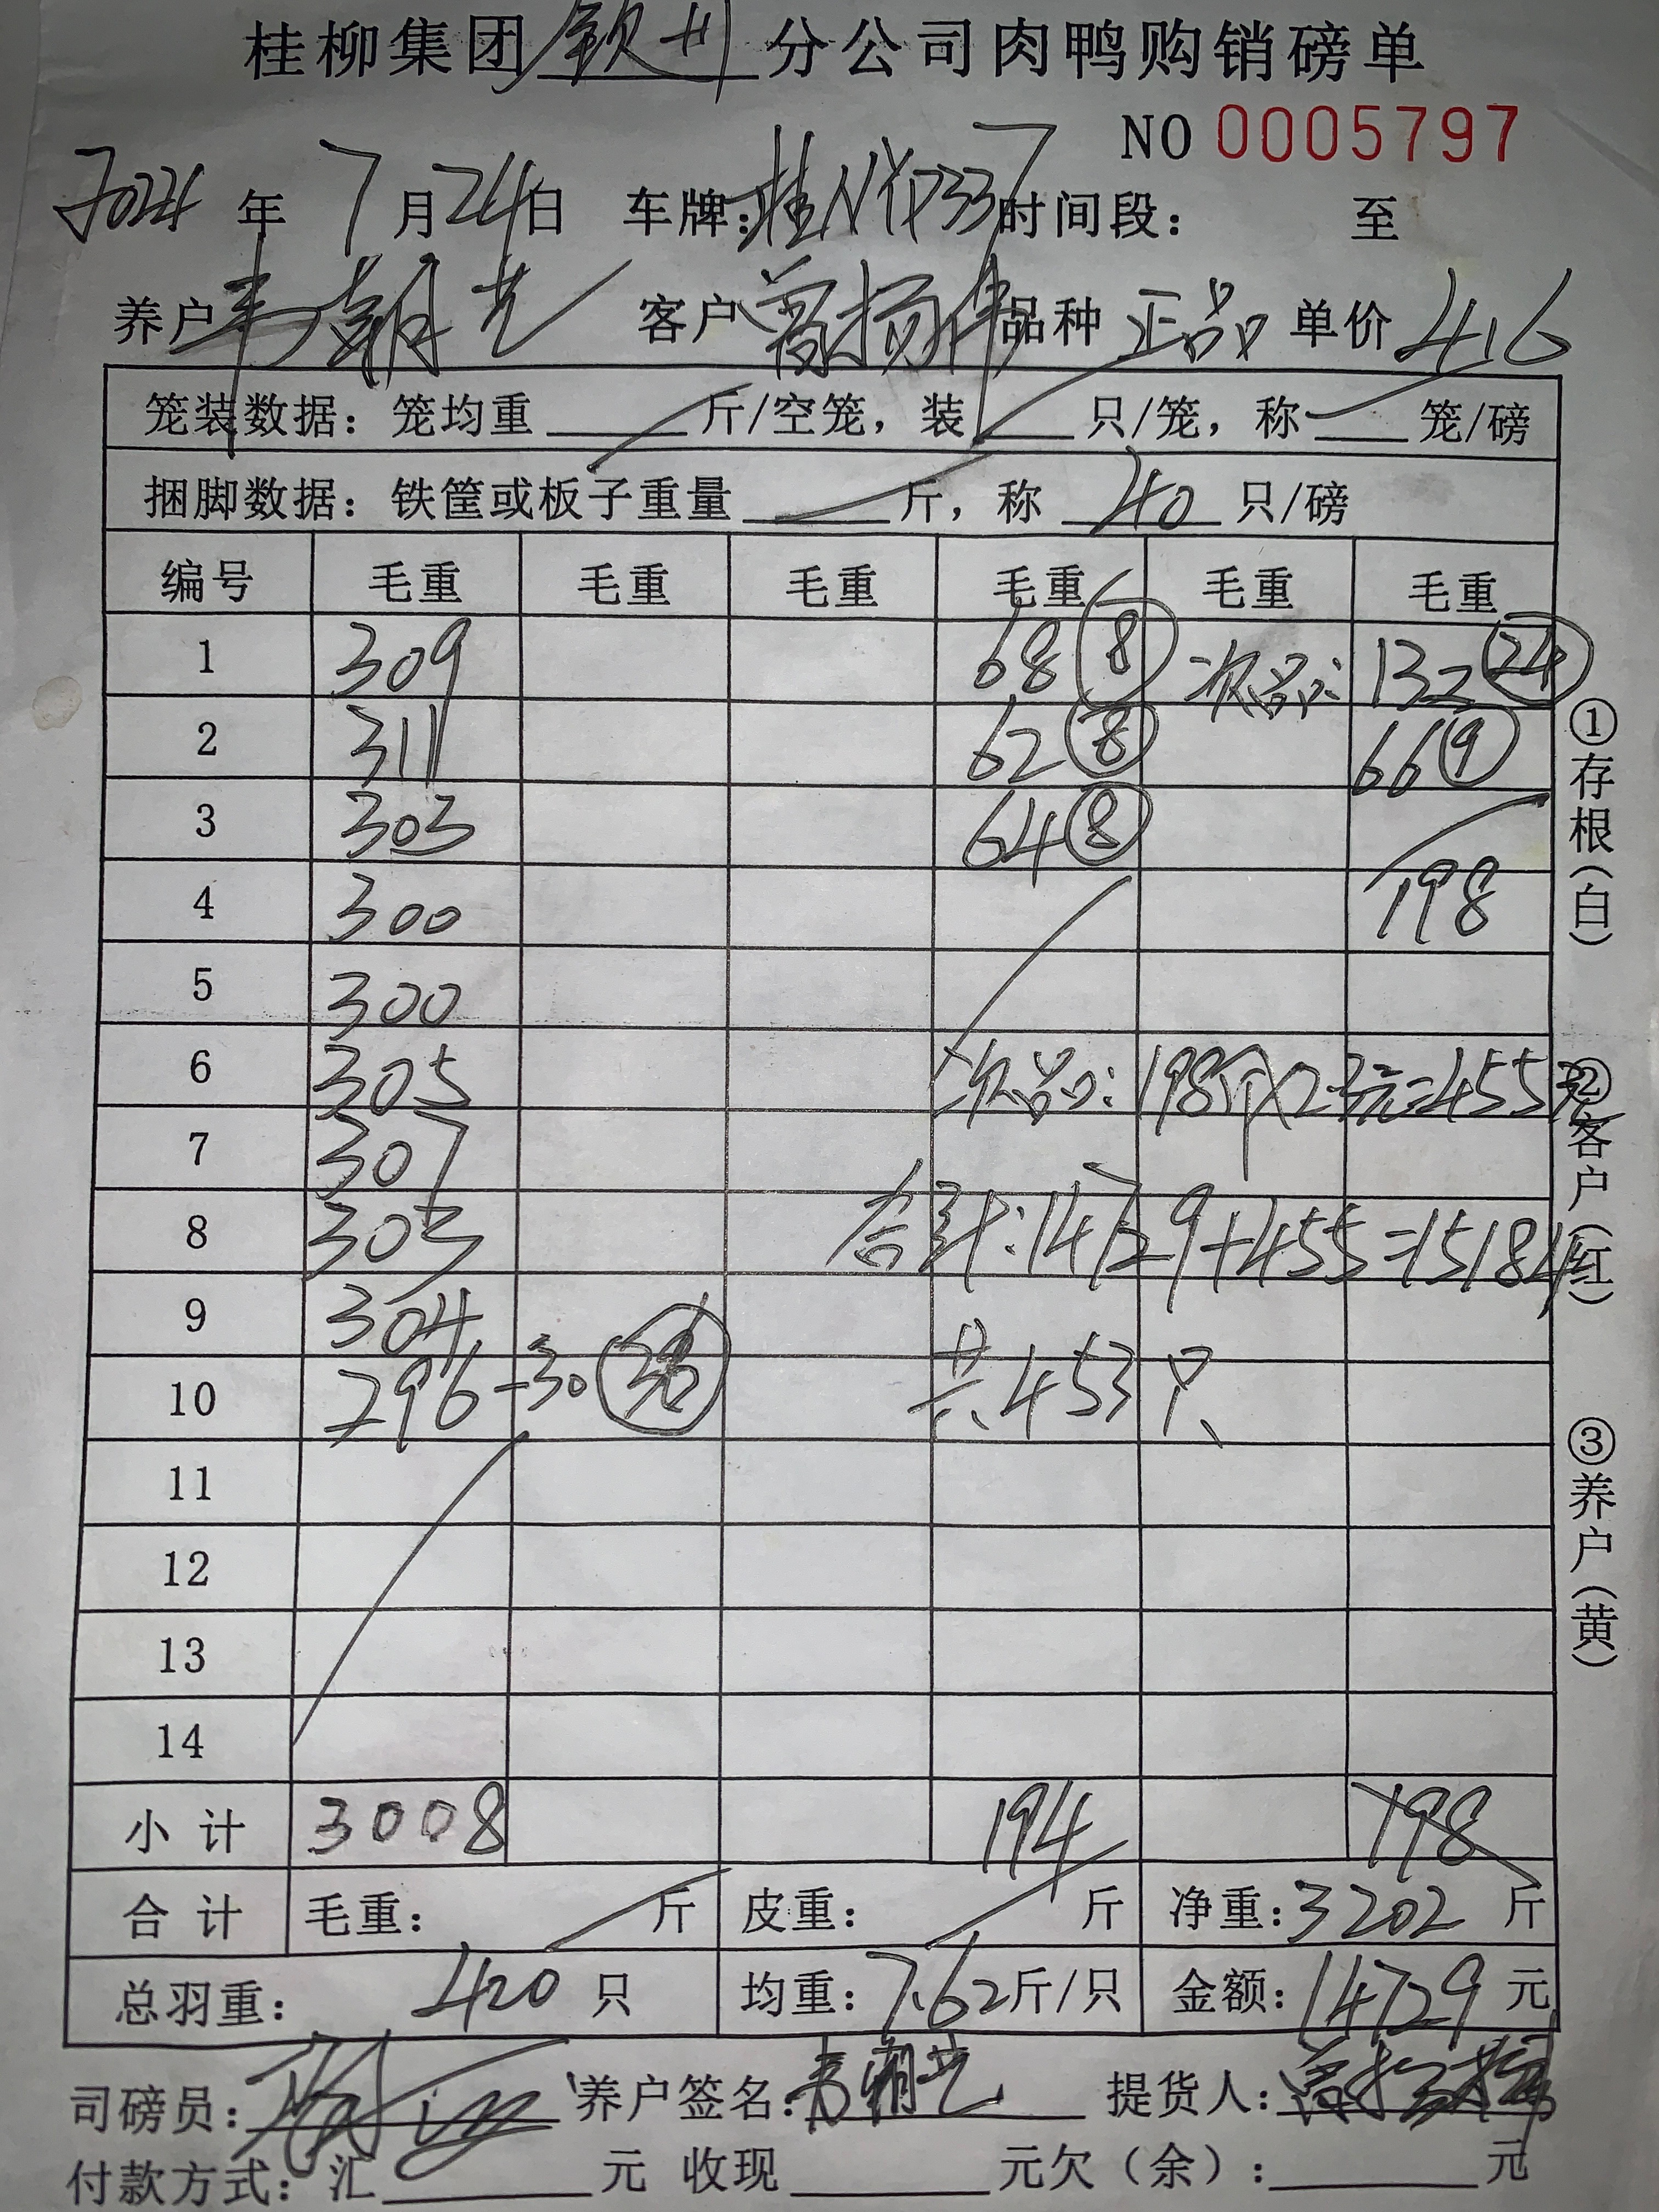 桂柳集团钦州分公司肉鸭购销磅单
NO 0005797
2024年7月24日 车牌:桂NYP337 时间段: 至
养户韦朝芝 客户 品种 正品 单价 4.6
笼装数据:笼均重 斤/空笼,装 只/笼,称 笼/磅
捆脚数据:铁筐或板子重量 斤,称 40 只/磅
编号 毛重 毛重 毛重 毛重 毛重 毛重
1 309 68 8 次品: 132 24
2 311 62 8 66 9
3 303 64 8
4 300 198
5 300
6 305 次品: 198斤×2.3元=455元
7 307
8 303 合计:14729+455=15184
9 304
10 296 -30 共453只
11
12
13
14
小计 3008 194 198
合计 毛重: 斤 皮重: 斤 净重:3202 斤
总羽重: 420 只 均重:7.62斤/只 金额:14729 元
司磅员: 养户签名:韦朝芝 提货人:
付款方式:汇 元 收现 元欠(余): 元
①存根(白)
②客户(红)
③养户(黄)